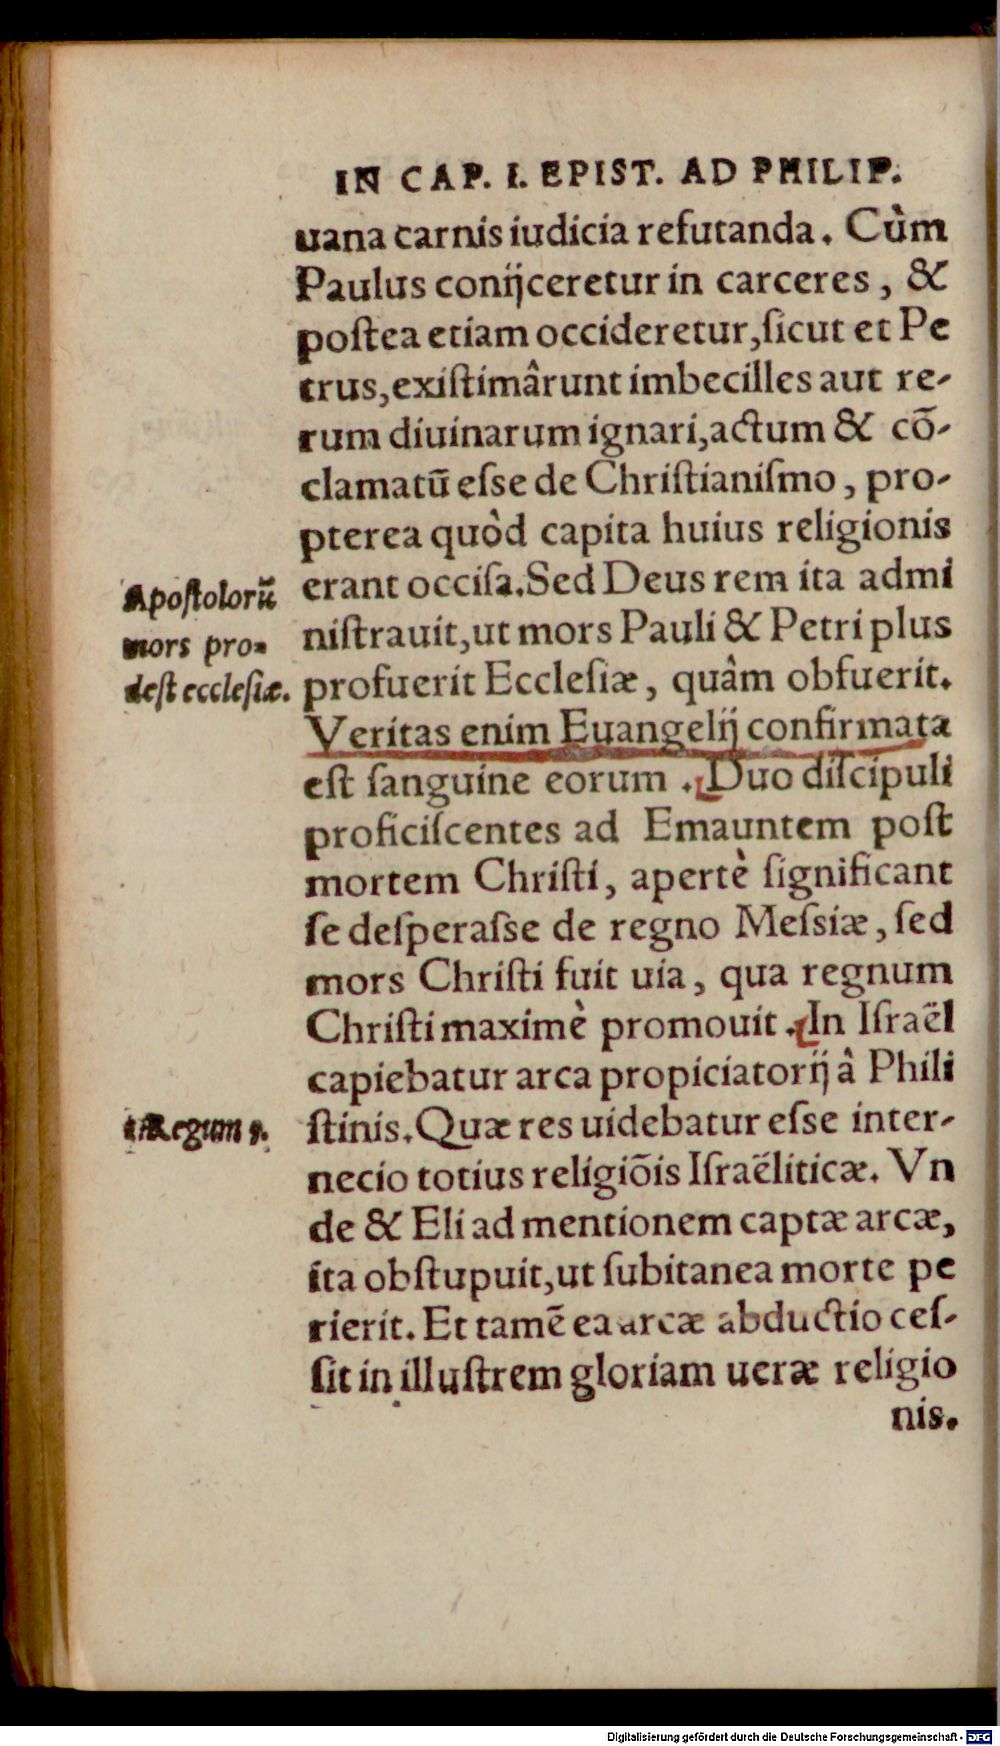 IN CAP. I. EPIST. AD PHILIP.
uana carnis iudicia refutanda. Cùm
Paulus conijceretur in carceres, &
poſtea etiam occideretur, ſicut et Pe
trus, exiſtimârunt imbecilles aut re-
rum diuinarum ignari, actum & cõ-
clamatũ eſse de Chriſtianiſmo, pro-
pterea quòd capita huius religionis
erant occiſa. Sed Deus rem ita admi
niſtrauit, ut mors Pauli & Petri plus
profuerit Eccleſiæ, quâm obfuerit.
Veritas enim Euangelij confirmata
eſt ſanguine eorum. Duo diſcipuli
proficiſcentes ad Emauntem poſt
mortem Chriſti, apertè ſignificant
ſe deſperaſse de regno Meſsiæ, ſed
mors Chriſti fuit uia, qua regnum
Chriſti maximè promouit. In Iſraël
capiebatur arca propiciatorij â Phili
ſtinis. Quæ res uidebatur eſse inter-
necio totius religiõis Iſraëliticæ. Vn
de & Eli ad mentionem captæ arcæ,
ita obſtupuit, ut ſubitanea morte pe
rierit. Et tamẽ ea arcæ abductio ceſ-
ſit in illuſtrem gloriam ueræ religio
nis.
Apoſtolorũ
mors pro-
deſt eccleſiæ.
Regum
Digitalisierung gefördert durch die Deutsche Forschungsgemeinschaft - DFG